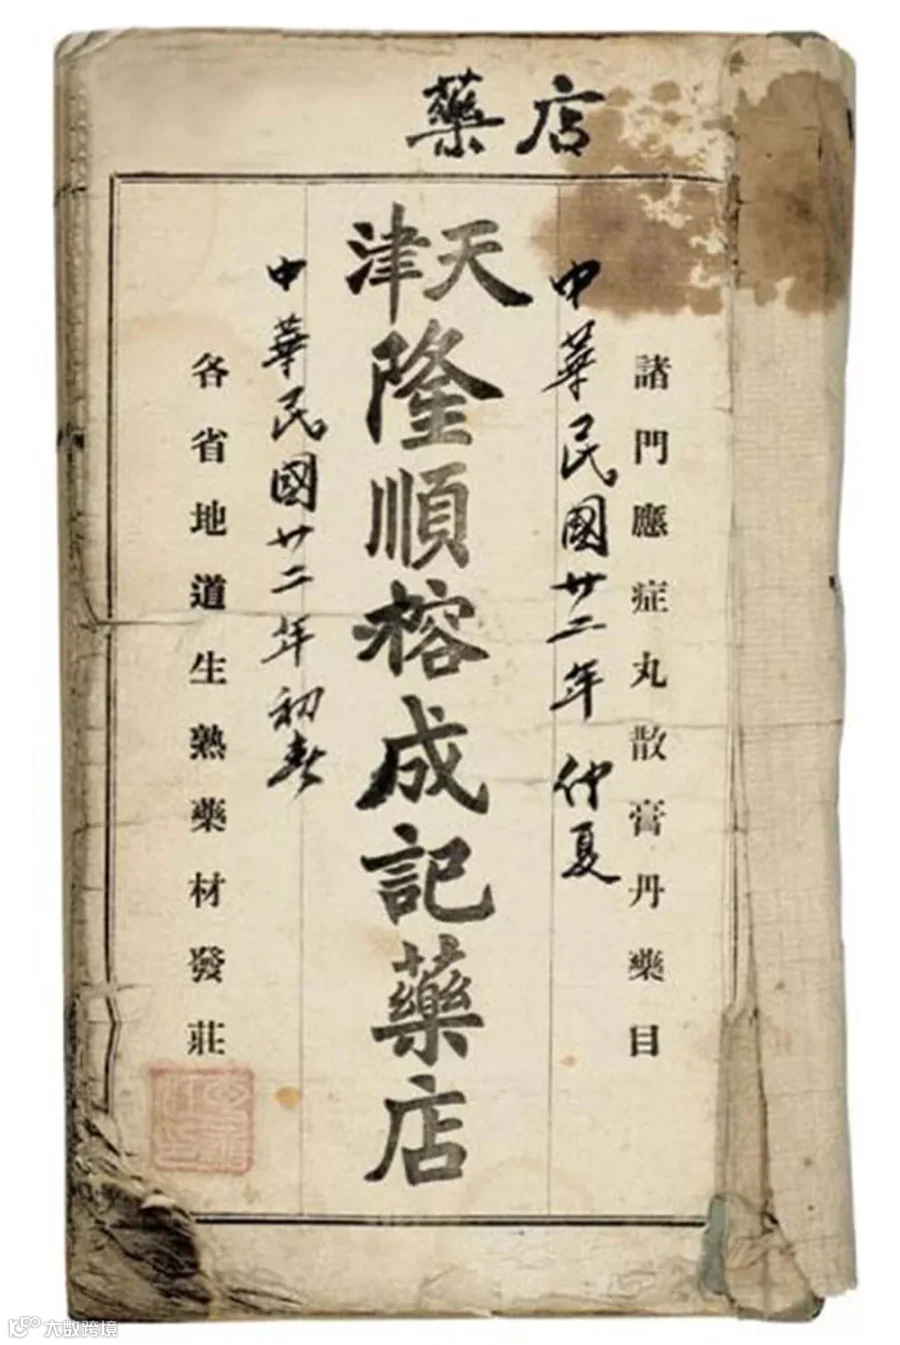 藥店
諸門應症丸散膏丹藥目
中華民國廿二年仲夏
天津
隆順榕成記藥店
中華民國廿二年初春
各省地道生熟藥材發莊
大数跨境